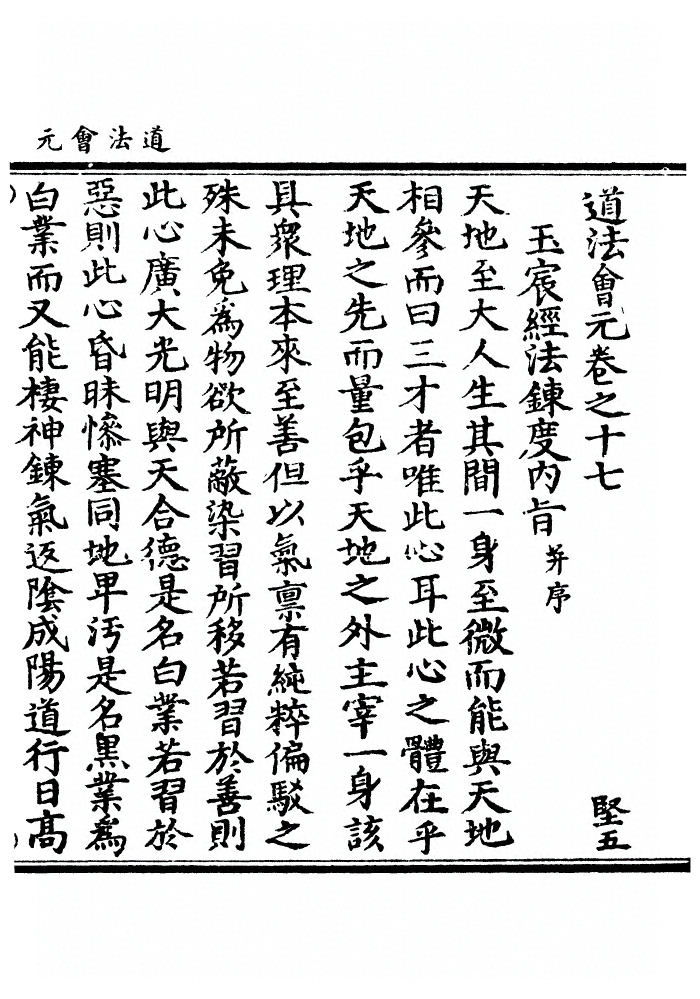 道法會元
道法會元卷之十七 堅五
玉宸經法鍊度內旨 并序
天地至大人生其間一身至微而能與天地
相參而曰三才者唯此心耳此心之體在乎
天地之先而量包乎天地之外主宰一身該
具衆理本來至善但以氣禀有純粹偏駁之
殊未免爲物欲所蔽染習所移若習於善則
此心廣大光明與天合德是名白業若習於
惡則此心昏昧慘塞同地卑汚是名黑業爲
白業而又能棲神鍊氣返陰成陽道行日高